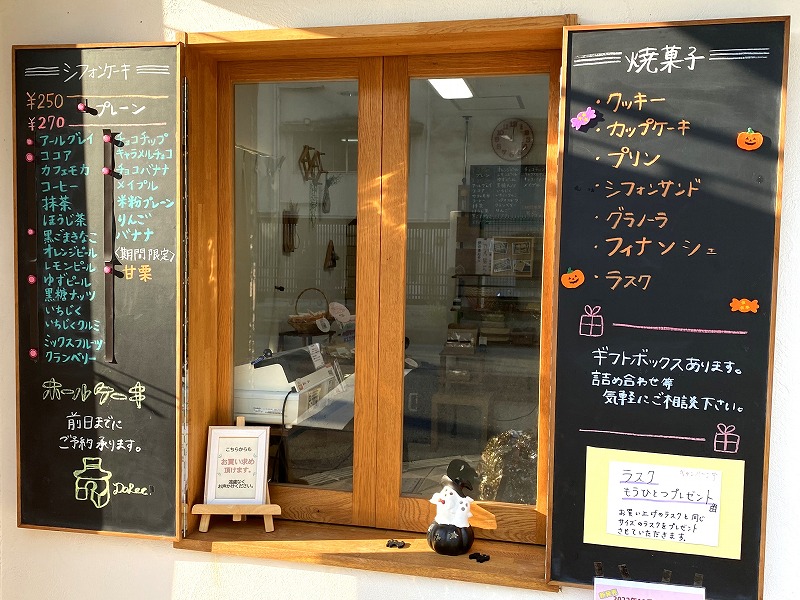 シフォンケーキ
¥250
プレーン
¥270
アールグレイ
ココア
カフェモカ
コーヒー
抹茶
ほうじ茶
黒ごまきなこ
オレンジピール
レモンピール
ゆずピール
黒糖ナッツ
いちじく
いちじくクルミ
ミックスフルーツ
クランベリー
チョコチップ
キャラメルチョコ
チョコバナナ
メイプル
米粉プレーン
りんご
バナナ
〈期間限定〉
甘栗
ホールケーキ
前日までに
ご予約承ります。
こちらからも
お買い求め
頂けます。
遠慮なく
お声かけください。
焼菓子
・クッキー
・カップケーキ
・プリン
・シフォンサンド
・グラノーラ
・フィナンシェ
・ラスク
ギフトボックスあります。
詰め合わせ等
気軽にご相談下さい。
ラスク
もうひとつプレゼント
お買い上げのラスクと同じ
サイズのラスクをプレゼント
させていただきます。